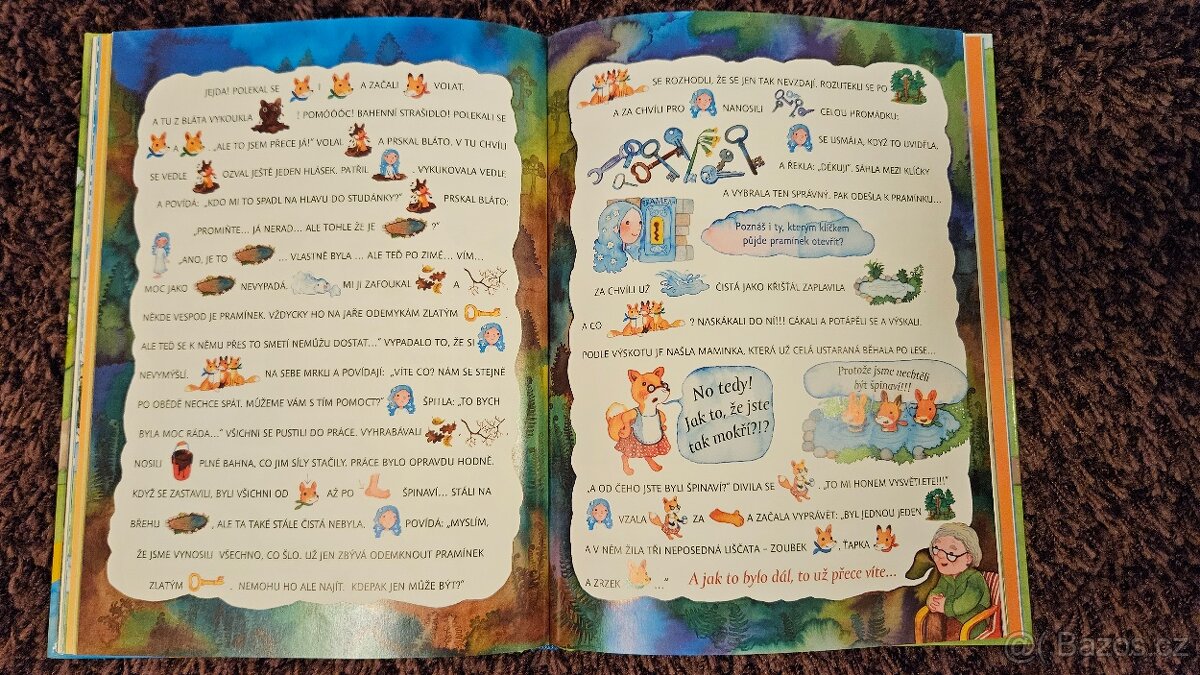 JEJDA! POLEKAL SE I A ZAČALI VOLAT.
A TU Z BLÁTA VYKOUKLA ! POMÓÓÓC! BAHENNÍ STRAŠIDLO! POLEKALI SE
A . „ALE TO JSEM PŘECE JÁ!" VOLAL A PRSKAL BLÁTO. V TU CHVÍLI
SE VEDLE OZVAL JEŠTĚ JEDEN HLÁSEK. PATŘIL . VYKUKOVALA VEDLE
A POVÍDÁ: „KDO MI TO SPADL NA HLAVU DO STUDÁNKY?" PRSKAL BLÁTO:
„PROMIŇTE... JÁ NERAD... ALE TOHLE ŽE JE ?"
„ANO, JE TO ... VLASTNĚ BYLA ... ALE TEĎ PO ZIMĚ... VÍM...
MOC JAKO NEVYPADÁ. MI JI ZAFOUKAL A .
NĚKDE VESPOD JE PRAMÍNEK. VŽDYCKY HO NA JAŘE ODEMYKÁM ZLATÝM .
ALE TEĎ SE K NĚMU PŘES TO SMETÍ NEMŮŽU DOSTAT..." VYPADALO TO, ŽE SI
NEVYMÝŠLÍ. NA SEBE MRKLI A POVÍDAJÍ: „VÍTE CO? NÁM SE STEJNĚ
PO OBĚDĚ NECHCE SPÁT. MŮŽEME VÁM S TÍM POMOCT?" ŠPITLA: „TO BYCH
BYLA MOC RÁDA..." VŠICHNI SE PUSTILI DO PRÁCE. VYHRABÁVALI .
NOSILI PLNÉ BAHNA, CO JIM SÍLY STAČILY. PRÁCE BYLO OPRAVDU HODNĚ.
KDYŽ SE ZASTAVILI, BYLI VŠICHNI OD AŽ PO ŠPINAVÍ... STÁLI NA
BŘEHU , ALE TA TAKÉ STÁLE ČISTÁ NEBYLA. POVÍDÁ: „MYSLÍM,
ŽE JSME VYNOSILI VŠECHNO, CO ŠLO. UŽ JEN ZBÝVÁ ODEMKNOUT PRAMÍNEK
ZLATÝM . NEMOHU HO ALE NAJÍT. KDEPAK JEN MŮŽE BÝT?"
SE ROZHODLI, ŽE SE JEN TAK NEVZDAJÍ. ROZUTEKLI SE PO
A ZA CHVÍLI PRO NANOSILI CELOU HROMÁDKU:
SE USMÁLA, KDYŽ TO UVIDĚLA,
A ŘEKLA: „DĚKUJI". SÁHLA MEZI KLÍČKY
A VYBRALA TEN SPRÁVNÝ. PAK ODEŠLA K PRAMÍNKU...
Poznáš i ty, kterým klíčkem
půjde pramínek otevřít?
ZA CHVÍLI UŽ ČISTÁ JAKO KŘIŠŤÁL ZAPLAVILA .
A CO ? NASKÁKALI DO NÍ!!! CÁKALI A POTÁPĚLI SE A VÝSKALI.
PODLE VÝSKOTU JE NAŠLA MAMINKA, KTERÁ UŽ CELÁ USTARANÁ BĚHALA PO LESE...
No tedy!
Jak to, že jste
tak mokří?!?
Protože jsme nechtěli
být špinaví!!!
„A OD ČEHO JSTE BYLI ŠPINAVÍ?" DIVILA SE . „TO MI HONEM VYSVĚTLETE!!!"
VZALA ZA A ZAČALA VYPRÁVĚT: „BYL JEDNOU JEDEN
A V NĚM ŽILA TŘI NEPOSEDNÁ LIŠČATA – ZOUBEK , ŤAPKA
A ZRZEK ..." A jak to bylo dál, to už přece víte...
@ Bazos.cz